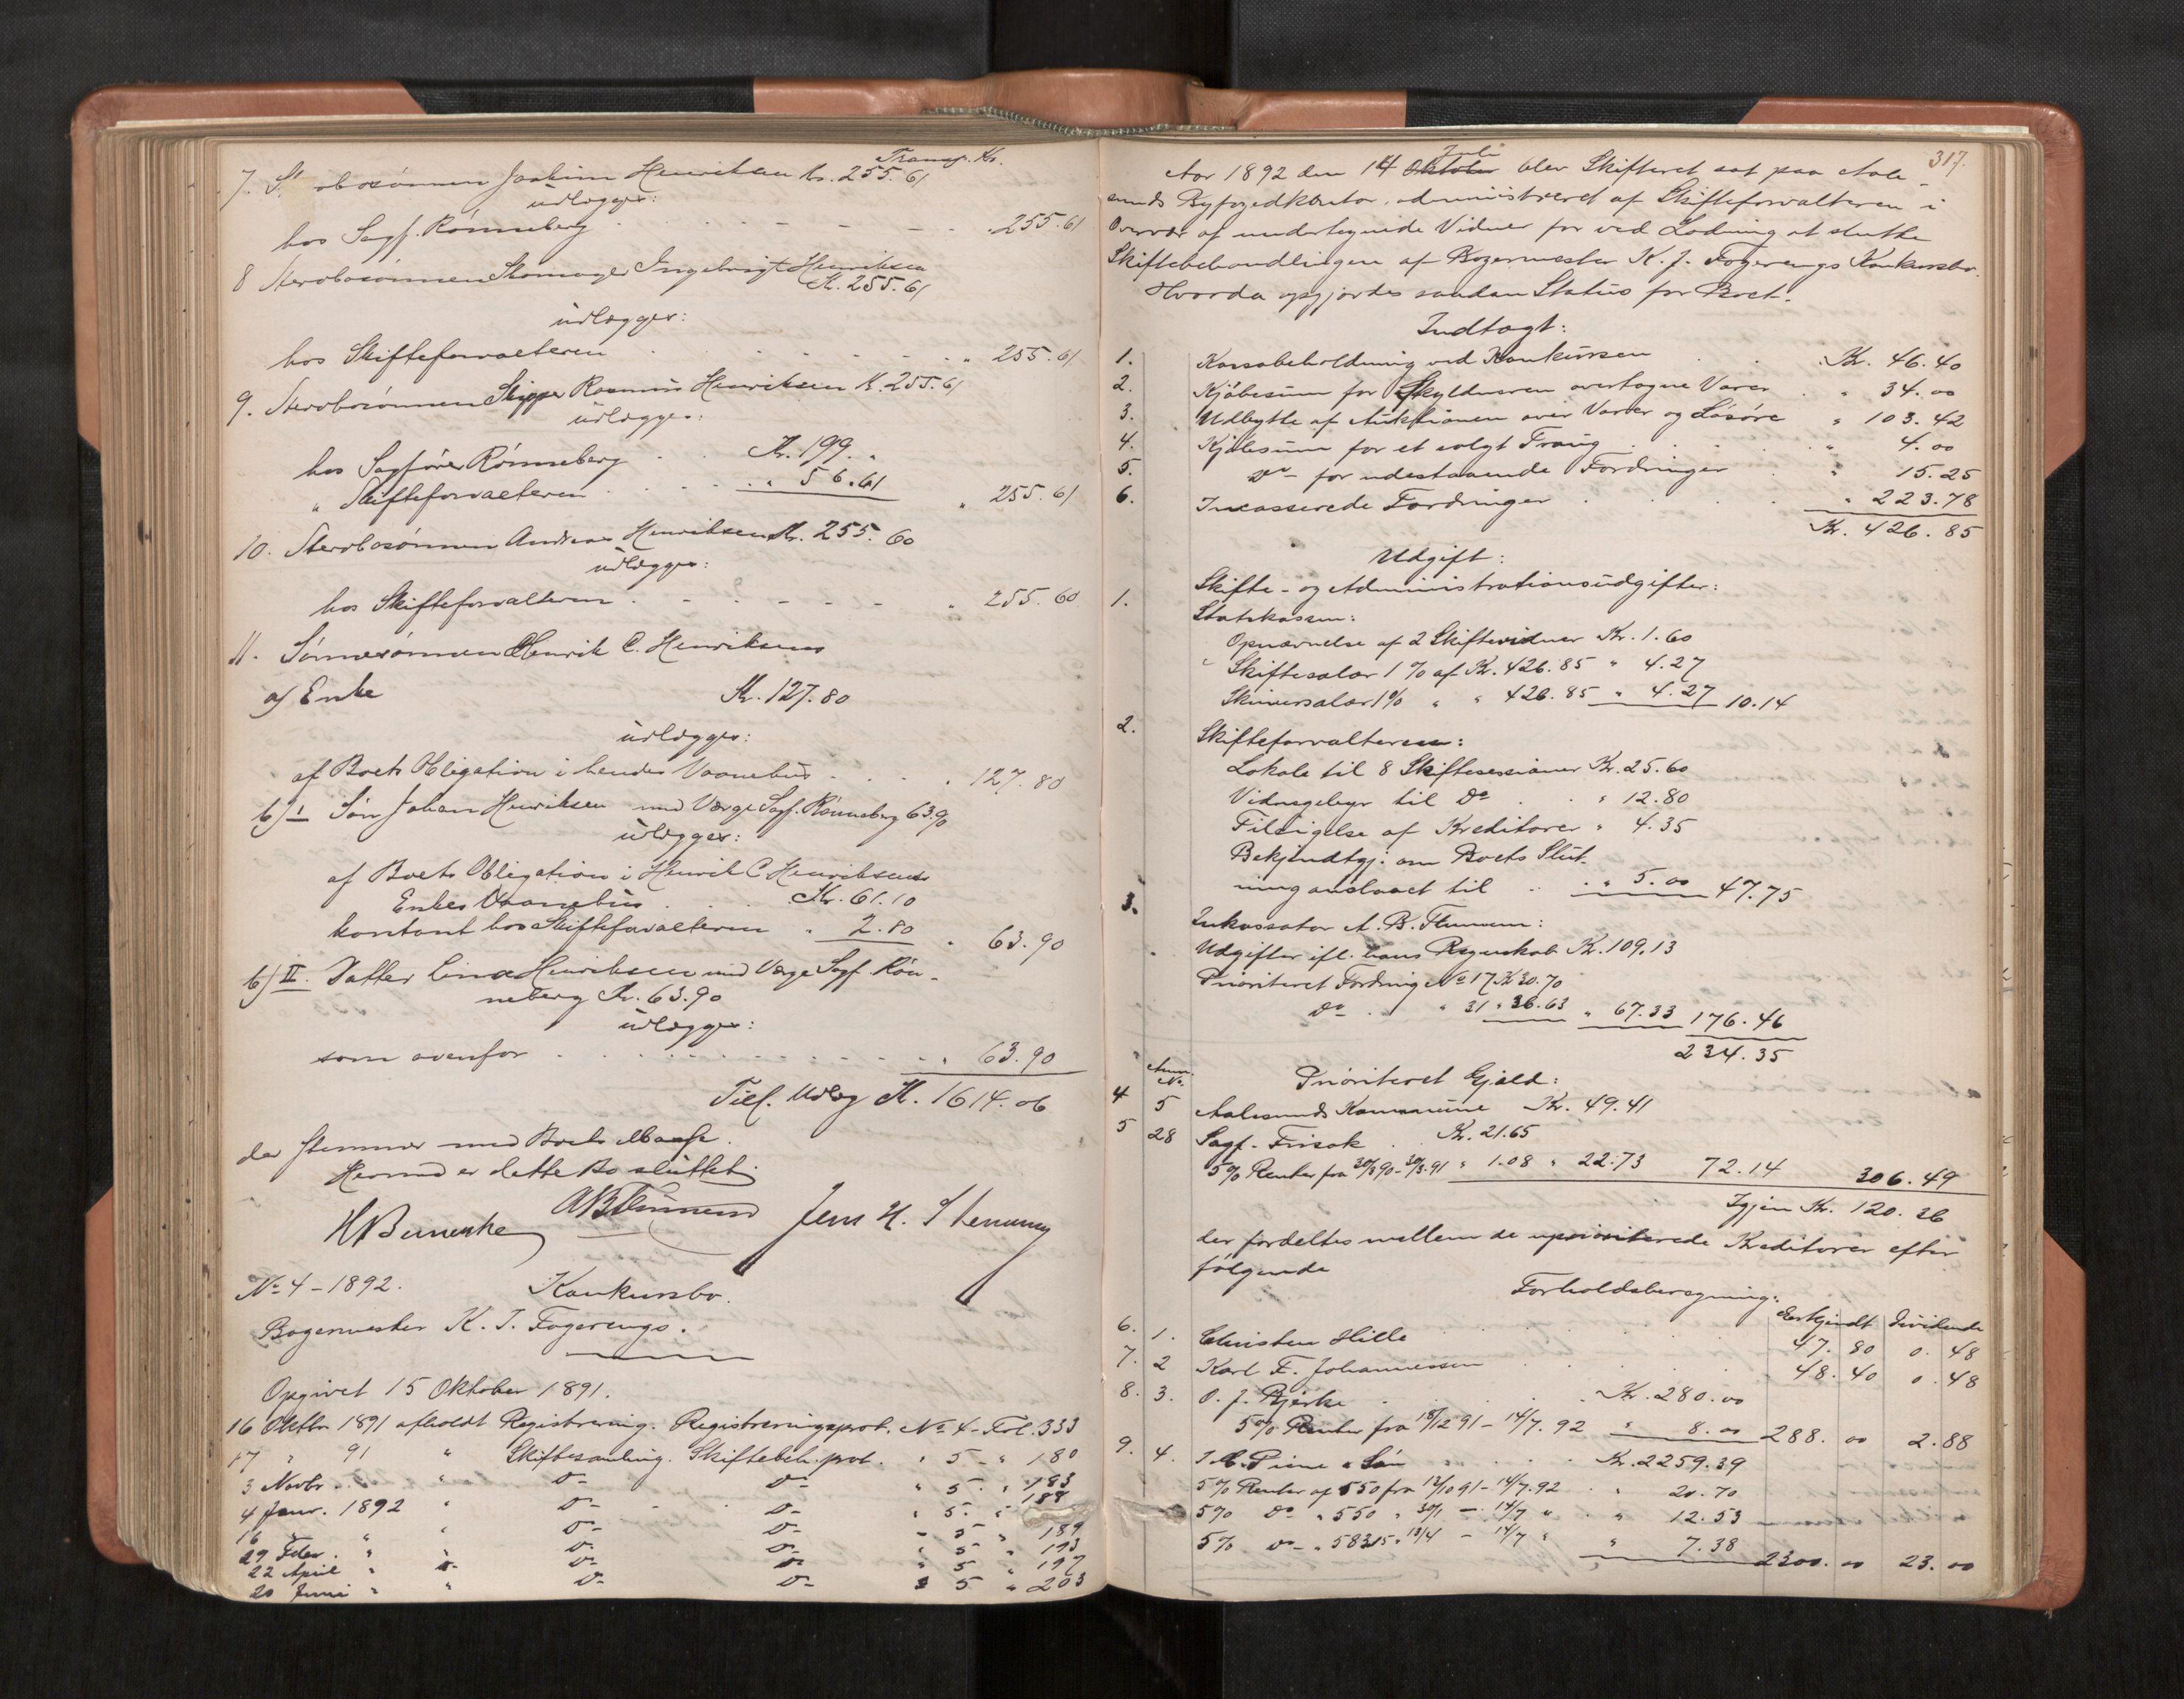 Transp. Kr.
7. St obosönnen Joakim Henriksen Kr. 255.61
udlægges:
hos Sagf. Rönneberg . 255.61
8 Stervbosönnen Skomager Ingebrigt Henriksen
Kr. 255.61
udlægges:
hos Skifteforvalteren " 255.61
9. Stervbosönnen Skipper Rasmus Henriksen K. 255.61
udlægges:
hos Sagförer Rönneberg . . Kr. 199. "
" Skifteforvalteren . . . " 56.61 " 255.61
10. Stervbosönnen Andreas Henriksen Kr. 255.60
udlægges:
hos Skifteforvalteren . - - - - " 255.60
11. Sönnesönnen Henrik C. Henriksens
a) Enke Kr. 127.80
udlægges:
af Boets Obligation i hendes Vaanehus . . . . 127.80
b) I Sön Johan Henriksen med Værge Sagf. Rönneberg 63.90
udlægges:
af Boets Obligation i Henrik C Henriksens
Enkes Vaanehus . . . Kr. 61.10
kontant hos Skifteforvalteren " 2.80 " 63.90
b) II. Datter Lina Henriksen med Værge Sagf. Rön-
neberg Kr. 63.90
udlægges:
som ovenfor . . . . . . . . . . . " 63.90
Tils. Udlæg Kr. 1614.06
der stemmer med Boets Masse.
Hermed er dette Bo sluttet.
Jens H.
No 4 - 1892. Konkursbo.
Bagermester K. J. Fagerengs.
Opgivet 15 Oktober 1891.
16 Oktbr 1891 afholdt Registrering. Registreringsprot. No 4 - Fol. 333
17 " 91 " Skiftesamling. Skiftebeh. prot. " 5 - " 180
3 Novbr. " " Do- Do- " 5. " 183
4 Janr. 1892 " Do- Do- " 5. " 188
16 " " Do- Do- " 5 " 189
29 Febr. " " Do- Do- " 5 " 193
22 April " " Do- Do- " 5 " 197
20 Juni " " Do- Do- " 5 " 203
317.
Juli
Aar 1892 den 14 Oktober blev Skifteret sat paa Aale-
sunds Byfogedkontor, administreret af Skifteforvalteren i
Overvær af undertegnede Vidner for ved Lodning at slutte
Skiftebehandlingen af Bagermester K. J. Fagerengs Konkursbo.
Hvorda opgjordes saadan Status for Boet.
Indtægt:
1. Kassabeholdning ved Konkursen . . Kr. 46.40
2. Kjöbesum for Skyldneren overtagne Varer . " 34.00
3. Udbytte af Auktionen over Varer og Lösöre " 103.42
4. Kjöbesum for et solgt Traug . . . " 4.00
5. Do - for udestaaende Fordringer . " 15.25
6. Incasserede Fordringer . . . . " 223.78
Kr. 426.85
Udgift:
1. Skifte- og Administrationsudgifter:
Statskassen:
Opnævnelse af 2 Skiftevidner Kr. 1.60
Skiftesalær 1 % af Kr. 426.85 " 4.27
Skriversalær 1% " " 426.85 " 4.27 10.14
2. Skifteforvalteren:
Lokale til 8 Skiftesessioner Kr. 25.60
Vidnegebyr til Do . . " 12.80
Tilsigelse af Kreditorer " 4.35
Bekjendtgj. om Boets Slut-
ning anslaaet til . . " 5.00 47.75
3. Inkassator A. B. Flemsem:
Udgifter ifl. hans Regnskab Kr. 109.13
Prioriteret Fordring No 17 Kr 30.70
Do . . " 31 " 36.63 " 67.33 176.46
234.35
Anm. No.
Prioriteret Gjæld:
4 5 Aalesunds Kommune Kr. 49.41
5 28 Sagf. Frisak . Kr. 21.65
5% Renter fra 30/3 90 - 30/3.91 " 1.08 " 22.73 72.14 306.49
Igjen Kr. 120.36
der fordeltes mellem de uprioriterede Kreditorer efter
fölgende
Forholdsberegning:
Anerkjendt Dividende
6. 1. Christen Hille 47.80 0.48
7. 2 Karl F. Johannessen . . . 48.40 0.48
8. 3. O. J. Bjerke . . . Kr. 280.00
5% Renter fra 18/12 91 - 14/7. 92 " 8.00 288.00 2.88
9. 4. & Sön . . . Kr. 2259.39
5% Renter af 550 fra 13/10 91 - 14/7.92 . " 20.70
5% Do " 550 " 30/1 - 14/7 " . " 12.53
5% Do- " 583.15 " 13/4 - 14/7 " " 7.38 2300.00 23.00